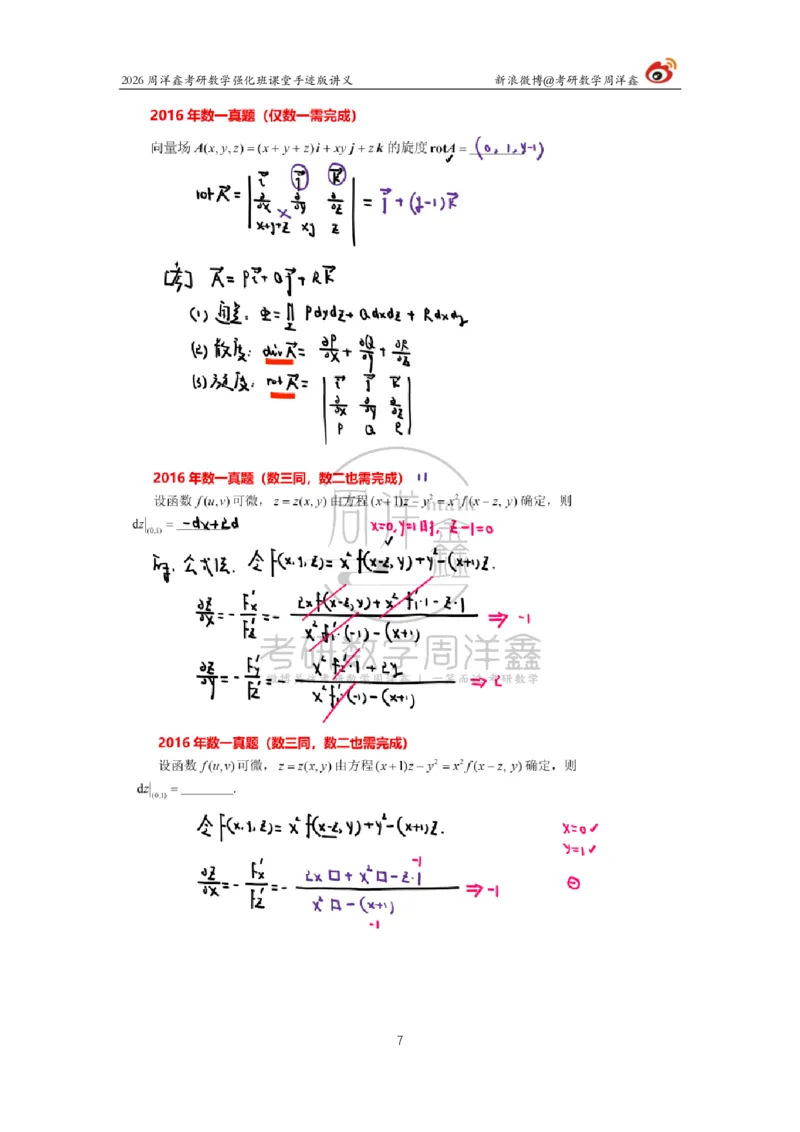 2026 周洋鑫考研数学强化班课堂手迹版讲义 新浪微博@考研数学周洋鑫
2016 年数一真题（仅数一需完成）
向量场 A(x, y, z) = (x + y + z)i + xy j + z k 的旋度 rotA = (0, 1, y-1)
rot A⃗ = | i⃗ j⃗ k⃗ ; ∂/∂x ∂/∂y ∂/∂z ; x+y+z xy z | = j⃗ + (y-1)k⃗
A⃗ = Pi⃗ + Qj⃗ + Rk⃗
(1) 通量: Φ = ∬_Σ Pdydz + Qdxdz + Rdxdy
(2) 散度: divA⃗ = ∂P/∂x + ∂Q/∂y + ∂R/∂z
(3) 旋度: rotA⃗ = | i⃗ j⃗ k⃗ ; ∂/∂x ∂/∂y ∂/∂z ; P Q R |
2016 年数一真题（数三同，数二也需完成）
设函数 f(u,v)可微，z = z(x, y)由方程(x+1)z − y² = x² f(x − z, y)确定，则
dz|(0,1) = -dx+2d
x=0, y=1时, z-1=0
公式法. 令 F(x,y,z) = x² f(x-z, y) + y² - (x+1)z.
∂z/∂x = - F'x/F'z = - (2xf(x-z,y) + x² f'1·1 - z·1)/(x² f'1·(-1) - (x+1)) ⇒ -1
∂z/∂y = - F'y/F'z = - (x² f'2·1 + 2y)/(x² f'1·(-1) - (x+1)) ⇒ 2
考研数学周洋鑫
2016 年数一真题（数三同，数二也需完成）
设函数 f(u,v)可微，z = z(x, y)由方程(x+1)z − y² = x² f(x − z, y)确定，则
dz|(0,1) = ________.
令 F(x,y,z) = x² f(x-z, y) + y² - (x+1)z. x=0✓
y=1✓
∂z/∂x = - F'x/F'z = - (2x□ + x²□ - z·1)/(x²□ - (x+1)) ⇒ -1
-1
-1
7